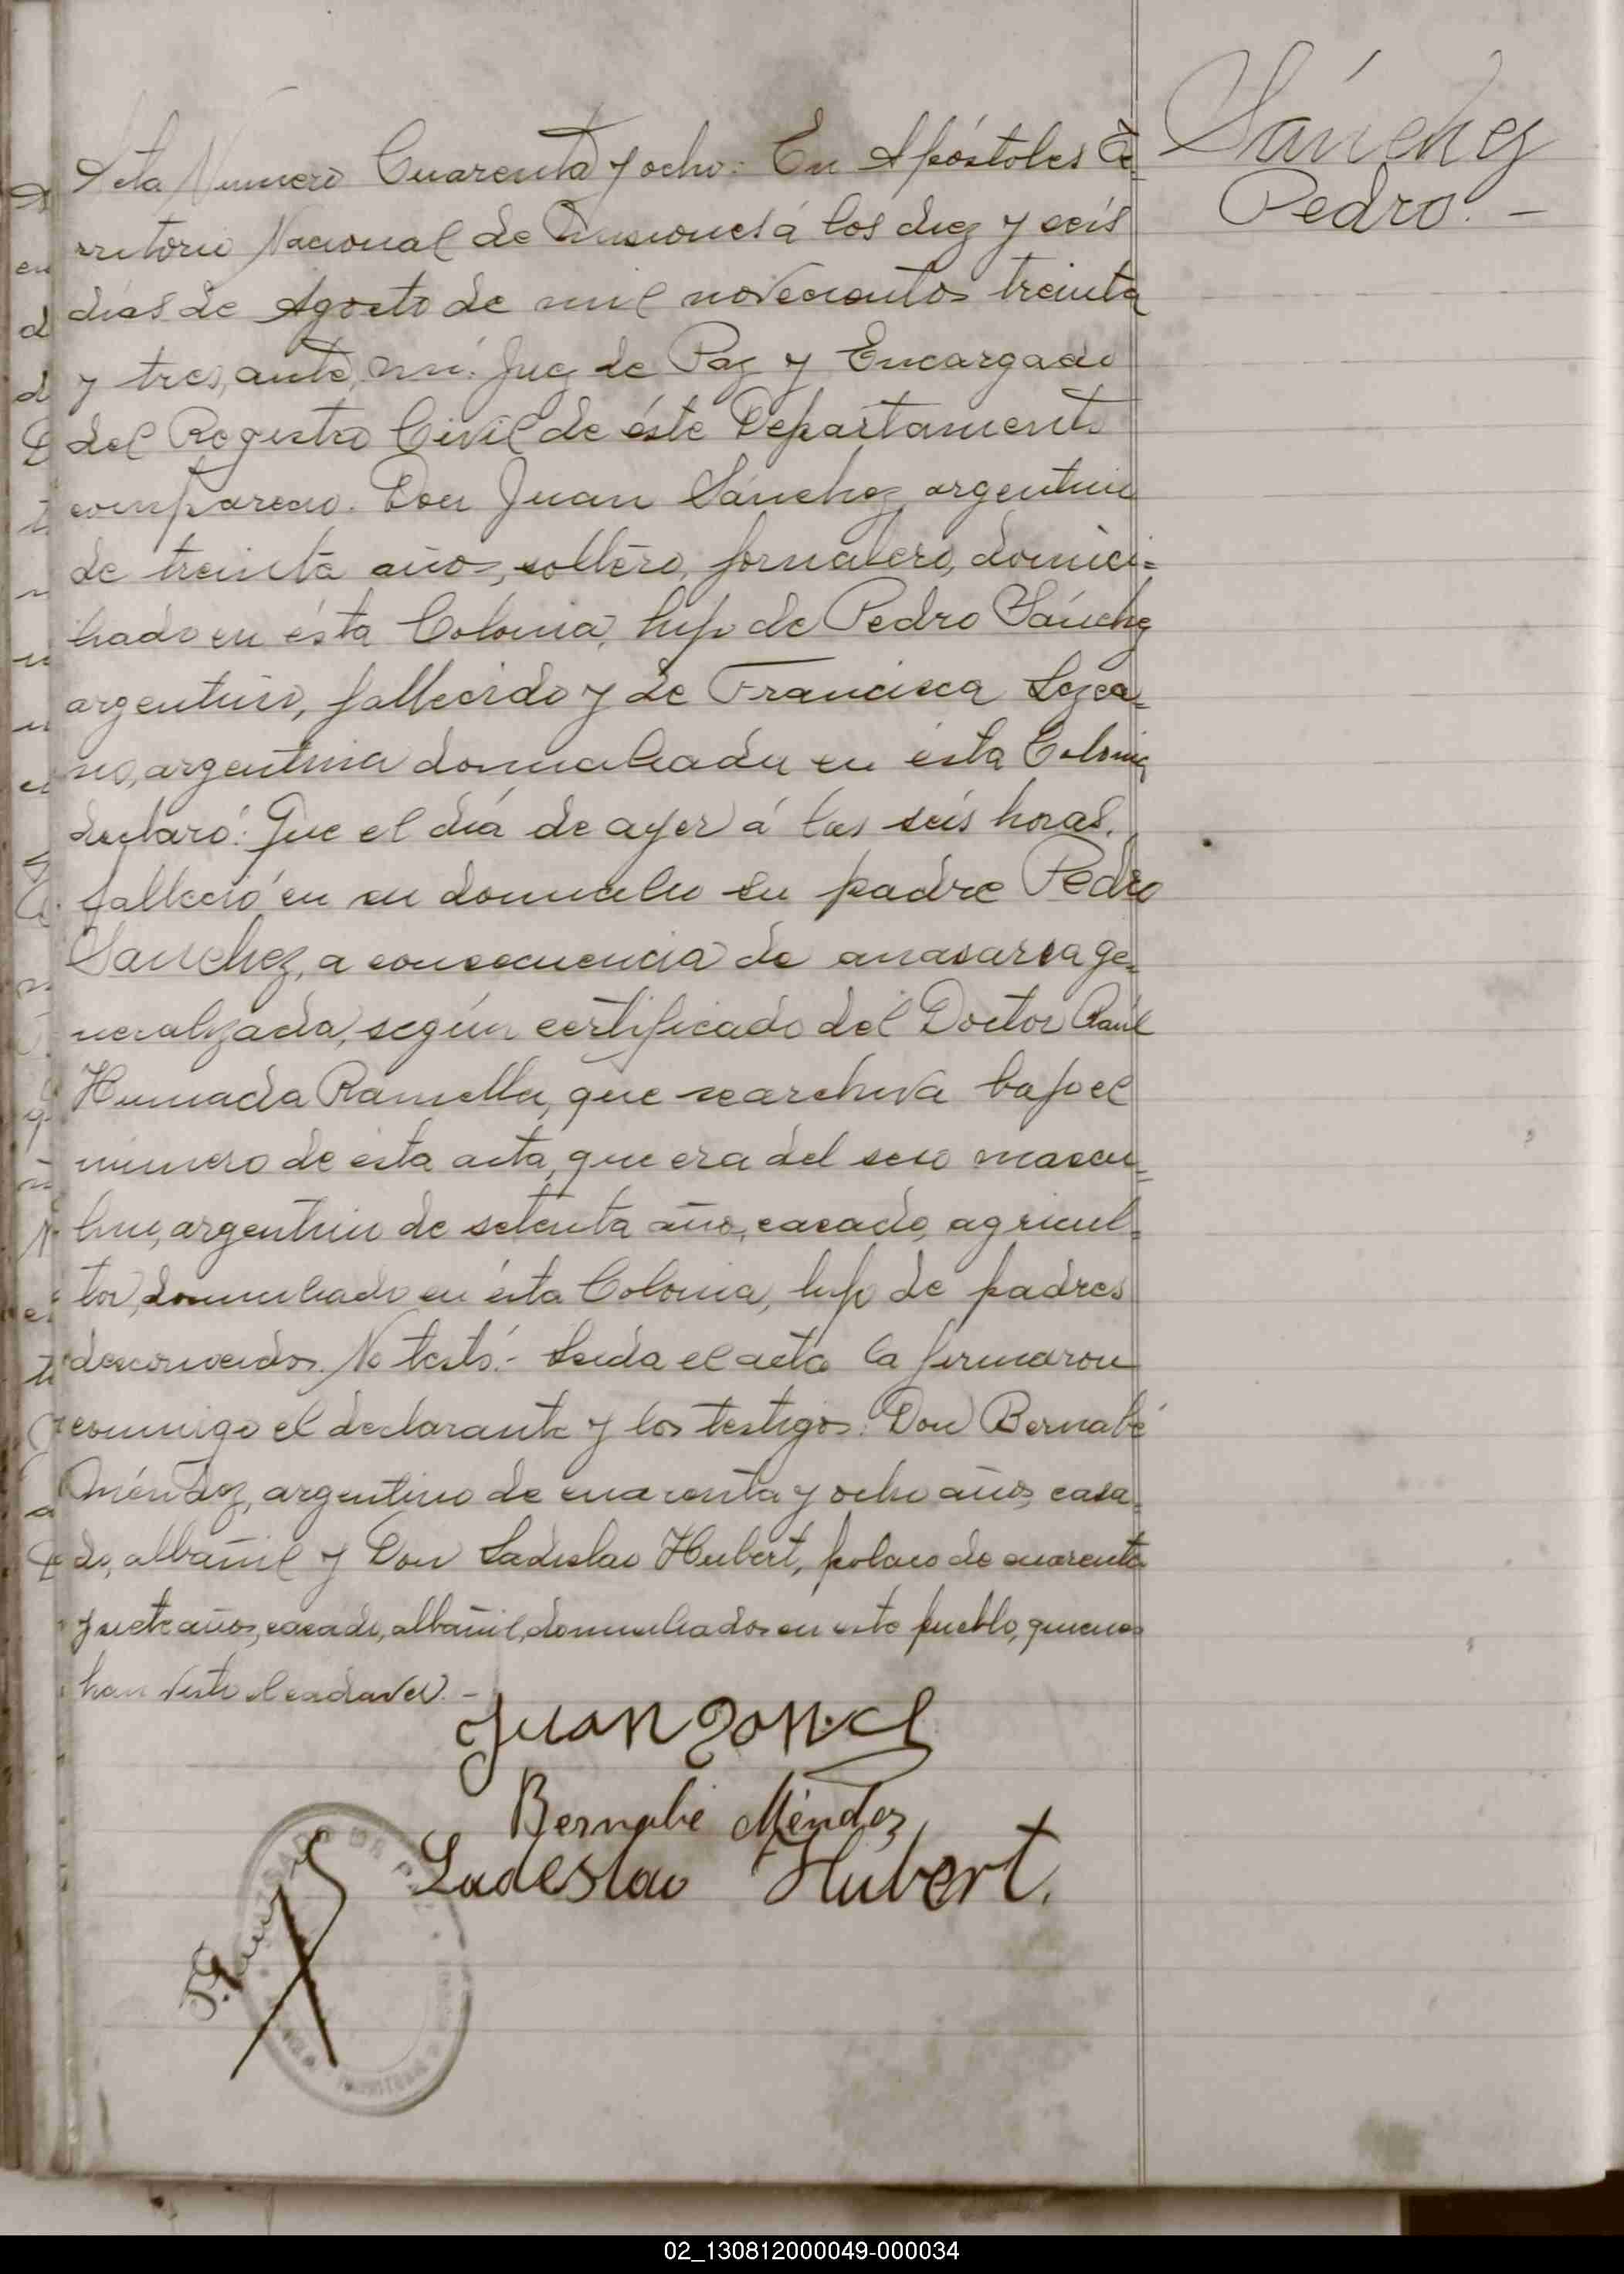 Sánchez
Pedro. -
Acta Número Cuarenta y ocho: En Apóstoles Te-
rritorio Nacional de Misiones á los diez y seis
días de Agosto de mil novecientos treinta
y tres, ante mí: Juez de Paz y Encargado
del Registro Civil de éste Departamento
compareció. Don Juan Sánchez argentino
de treinta años, soltero, jornalero, domici=
liado en ésta Colonia, hijo de Pedro Sánchez
argentino, fallecido y de Francisca
argentina domiciliada en ésta Colonia
declaró: Que el día de ayer á las seis horas.
falleció en su domicilio su padre Pedro
Sanchez, a consecuencia de anasarca ge=
neralizada, según certificado del Doctor Raúl
Humada Ramella, que se archiva bajo el
número de esta acta, que era del sexo mascu=
lino, argentino de setenta años, casado, agricul=
tor, domiciliado en ésta Colonia, hijo de padres
desconocidos. No testó.- Leída el acta la firmaron
conmigo el declarante y los testigos: Don Bernabé
Méndez, argentino de cuarenta y ocho años, casa=
do, albañil y Don Ladislao Hubert, polaco de cuarenta
y siete años, casado, albañil, domiciliados en este pueblo, quienes
han visto el cadaver. -
Juan
Bernabé Méndez
Ladeslao Hubert.
02_130812000049-000034